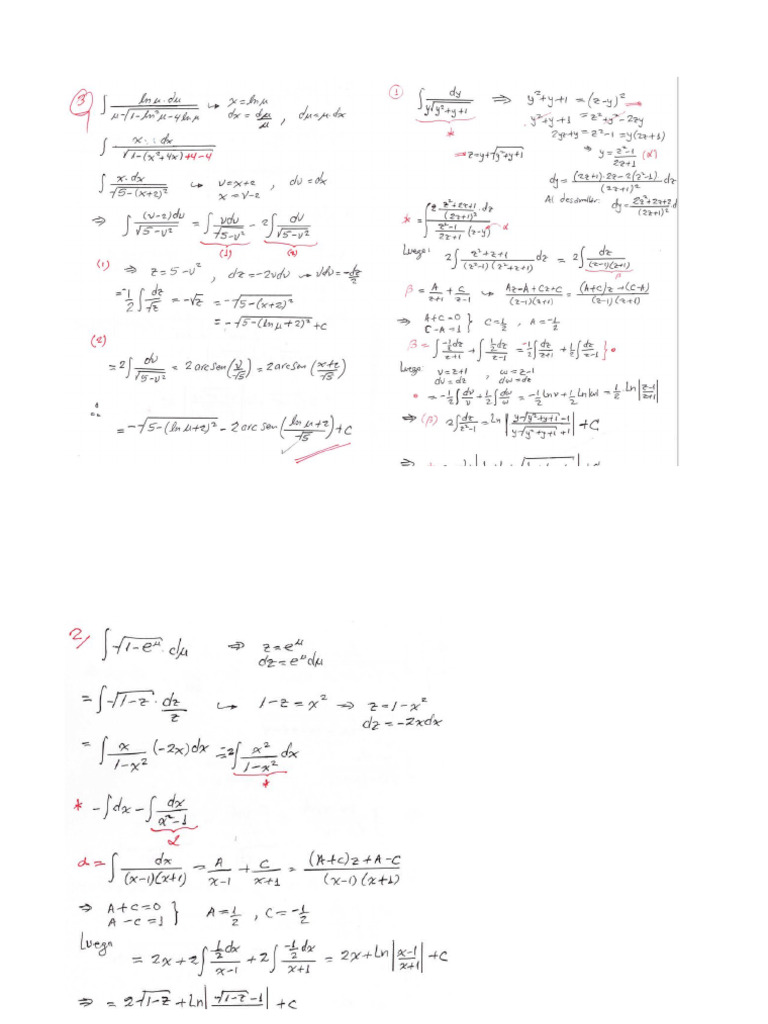 ③ ∫ lnμ·dμ / (μ√(1-ln²μ-4lnμ)) ↳ x=lnμ
dx=dμ/μ, dμ=μ·dx
∫ x·dx / √(1-(x²+4x)+4-4)
∫ x·dx / √(5-(x+2)²) ↳ v=x+2, dv=dx
x=v-2
⇒ ∫ (v-2)dv / √(5-v²) = ∫ vdv / √(5-v²) - 2∫ dv / √(5-v²)
(1) (2)
(1) ⇒ z=5-v², dz=-2vdv ↳ vdv=-dz/2
=-1/2 ∫ dz/√z = -√z = -√(5-(x+2)²)
= -√(5-(lnμ+2)²)+c
(2)
=2∫ dv/√(5-v²) = 2arcsen(v/√5) = 2arcsen((x+2)/√5)
∴
=-√(5-(lnμ+2)²) - 2arcsen((lnμ+2)/√5)+c
① ∫ dy / (y√(y²+y+1)) ⇒ y²+y+1=(z-y)²
*
y²+y+1=z²+y²-2zy
2yz+y=z²-1=y(2z+1)
→z=y+√(y²+y+1) ⇒ y=(z²-1)/(2z+1) (α)
dy=((2z+1)·2z-2(z²-1))/(2z+1)² dz
Al desarrollar: dy=(2z²+2z+2)d/(2z+1)²
*=∫ 2·(z²+2z+1)/(2z+1)²·dz / ((z²-1)/(2z+1)(z-y)) α
Luego: 2∫ (z²+z+1)/((z²-1)(z²+z+1)) dz = 2∫ dz/((z-1)(z+1))
β
β=A/(z+1)+C/(z-1) ↳ (Az-A+Cz+C)/((z-1)(z+1)) = ((A+C)z+(C-A))/((z-1)(z+1))
⇒ A+C=0
C-A=1 } C=1/2, A=-1/2
β=∫ -1/2dz/(z+1)+∫ 1/2dz/(z-1) = -1/2∫ dz/(z+1)+1/2∫ dz/(z-1) }
Luego: v=z+1, w=z-1
dv=dz, dw=dz
=-1/2∫ dv/v+1/2∫ dw/w=-1/2 lnv+1/2 ln|w|=1/2·ln|(z-1)/(z+1)|
⇒(β) 2∫ dz/(z²-1)=ln|(y-√(y²+y+1)-1)/(y-√(y²+y+1)+1)|+C
2/ ∫√(1-e^μ)·dμ ⇒ z=e^μ
dz=e^μdμ
=∫√(1-z)·dz/z ↳ 1-z=x² ⇒ z=1-x²
dz=-2xdx
=∫ x/(1-x²) (-2x)dx =-2∫ x²/(1-x²) dx
*
* -∫dx-∫ dx/(x²-1)
α
α=∫ dx/((x-1)(x+1)) = A/(x-1)+C/(x+1) = ((A+C)z+A-C)/((x-1)(x+1))
⇒ A+C=0
A-C=1 } A=1/2, C=-1/2
Luego
=2x+2∫ 1/2dx/(x-1)+2∫ -1/2dx/(x+1)=2x+Ln|(x-1)/(x+1)|+C